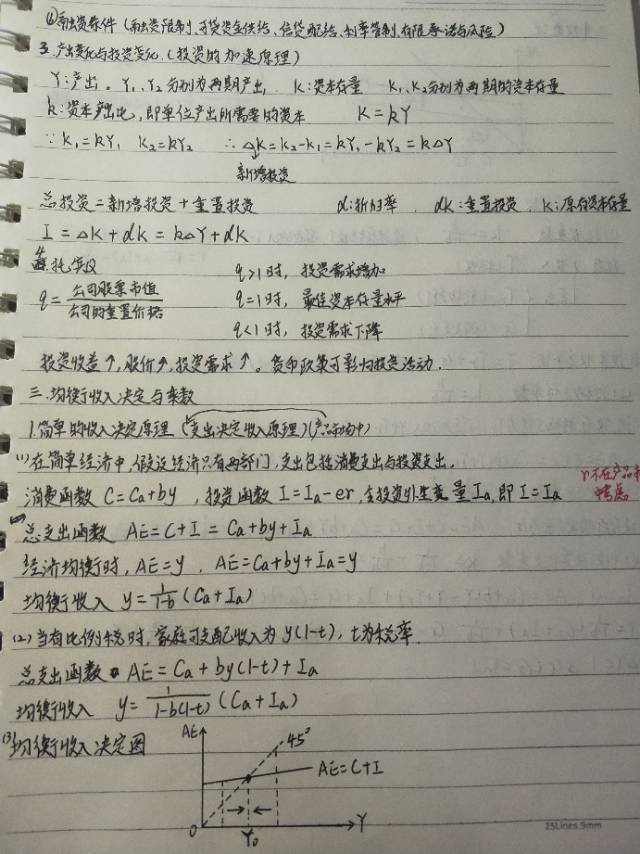 (6)融资条件(融资限制、可贷资金供给、信贷配给、利率管制、有限承诺与风险)
3.产出变化与投资变化.(投资的加速原理)
Y:产出。Y₁、Y₂分别为两期产出. K:资本存量 K₁、K₂分别为两期的资本存量
k:资本产出比,即单位产出所需要的资本 K=kY
∵K₁=kY₁ K₂=kY₂ ∴△K=K₂-K₁=kY₁-kY₂=k△Y
新增投资
总投资=新增投资+重置投资 α:折旧率. αK:重置投资. K:原有资本存量
I=△K+αK=k△Y+αK
4.托宾Q q>1时,投资需求增加
q=公司股票市值/公司的重置价格 q=1时,最佳资本存量水平
q<1时,投资需求下降
投资收益↑,股价↑,投资需求↑。货币政策可影响投资活动.
三.均衡收入决定与乘数
1.简单的收入决定原理(支出决定收入原理)(产品市场中)
(1)在简单经济中,假设经济只有两部门,支出包括消费支出与投资支出.
消费函数 C=Ca+by , 投资函数 I=Ia-er,令投资外生变量Ia,即I=Ia r不在产品市
场考虑
总支出函数 AE=C+I=Ca+by+Ia
经济均衡时,AE=y . AE=Ca+by+Ia=y
均衡收入 y=1/(1-b)(Ca+Ia)
(2)当有比例税时,家庭可支配收入为y(1-t),t为税率.
总支出函数 AE=Ca+by(1-t)+Ia
均衡收入 y=1/(1-b(1-t))(Ca+Ia)
(3)均衡收入决定图
AE
45°
AE=C+I
0
Y₀
Y
25Lines.9mm